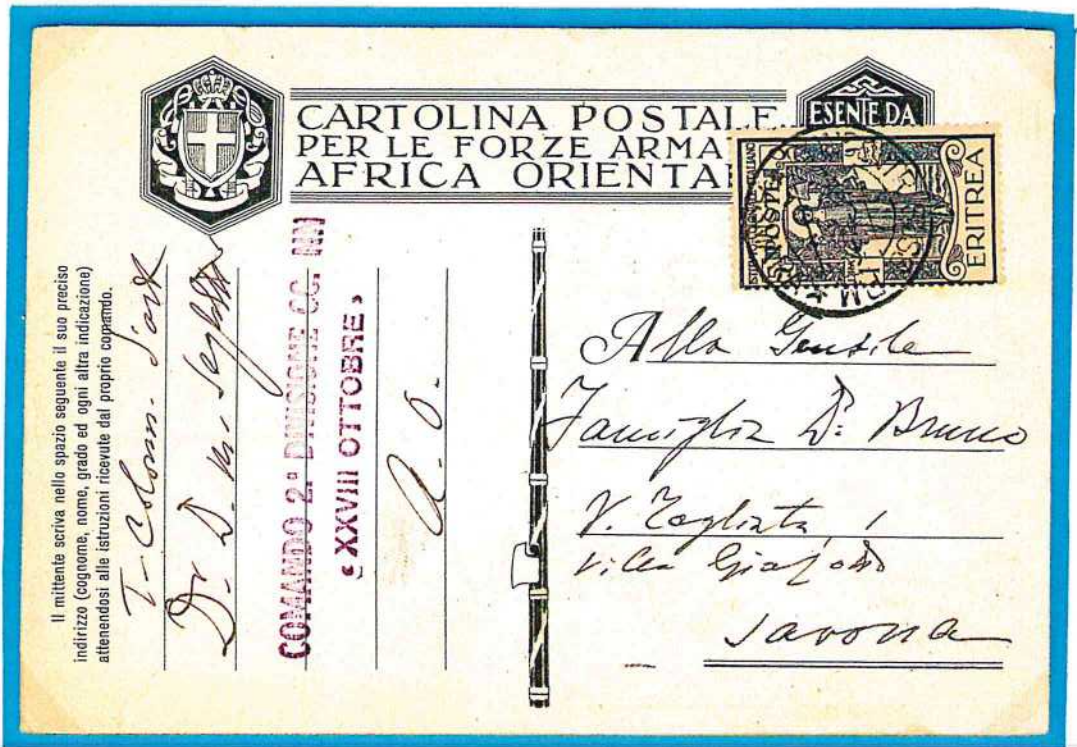 CARTOLINA POSTALE
PER LE FORZE ARMA
AFRICA ORIENTA
ESENTE DA
ERITREA
Il mittente scriva nello spazio seguente il suo preciso
indirizzo (cognome, nome, grado ed ogni altra indicazione)
attenendosi alle istruzioni ricevute dal proprio comando.
COMANDO 2ª DIVISIONE CC. NN
« XXVIII OTTOBRE »
A. O.
Alla Gentile
Famiglia D. Bruno
V.
Villa
Savona